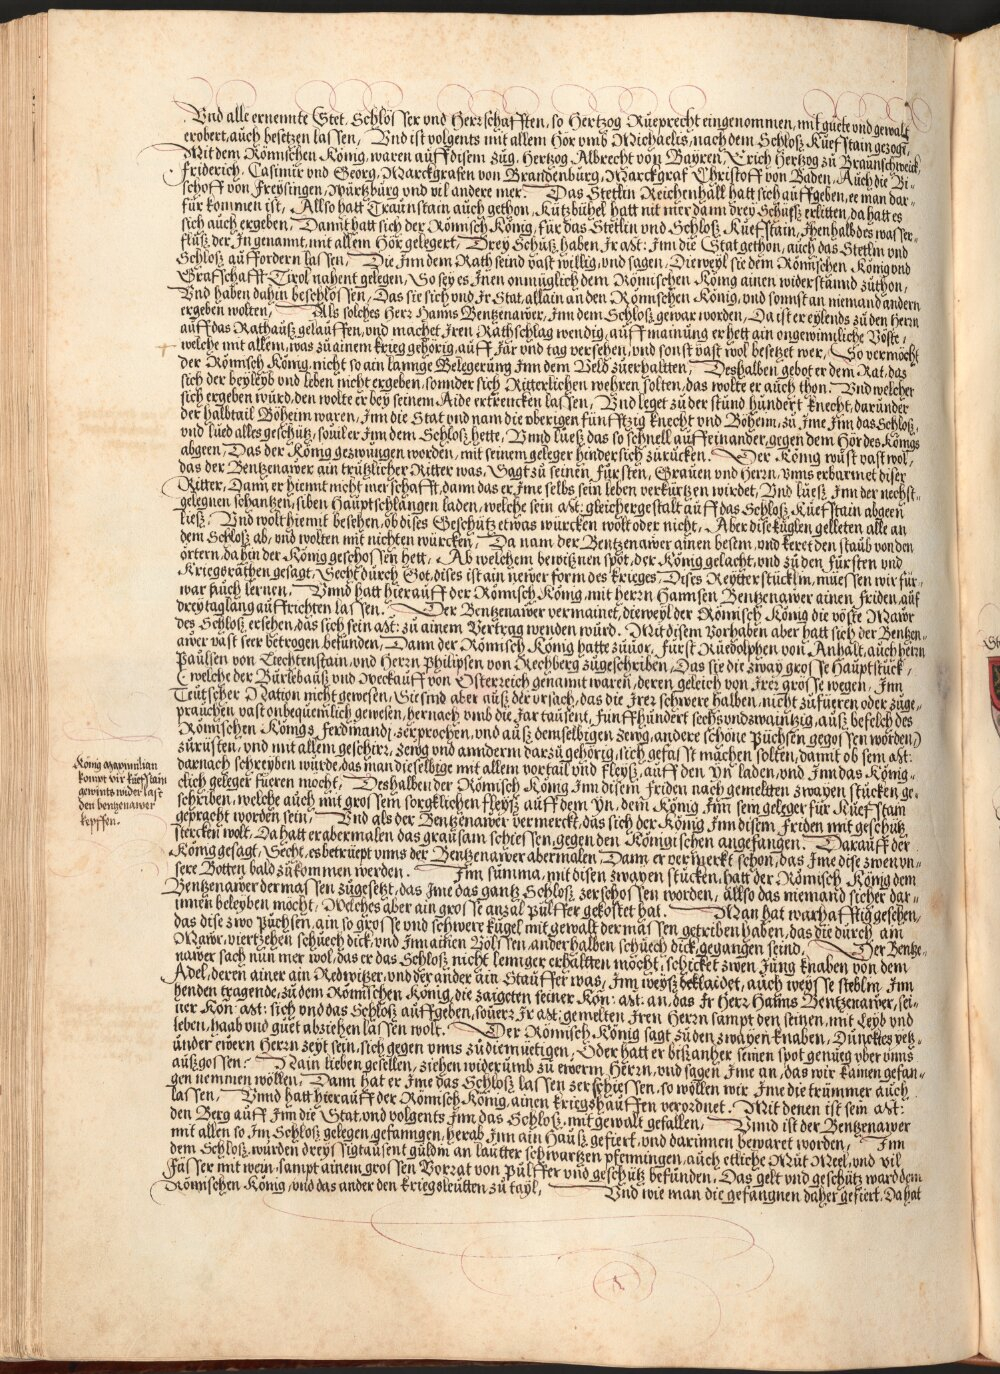 Vnd alle ernennte Stet, Schlösser vnd Herrschafften, so Hertzog Rueprecht eingenommen, mit guete vnd gewalt
erobert, auch besetzen lassen, Vnd ist volgents mit allem Hör vmb Michaelis, nach dem Schloß Kuefstain gezogen,
Mit dem Römischen König, waren auff disem zug, Hertzog Albrecht von Bayren, Erich Hertzog zu Braunschweick,
Friderich, Casimir vnd Georg, Marckgrafen von Brandenburg, Marckgraf Christoff von Baden, Auch die Bi-
schoff von Freysingen, Würtzburg vnd vil andere mer. Das Stetlin Reichenhall hatt sich auffgeben, ee man dar-
für kommen ist, Allso hatt Traunstain auch gethon, Kutzbühel hatt nit mer dann drey Schuss erlitten, da hatt es
sich auch ergeben, Damit hatt sich der Römisch König, für das Stetlin vnd Schloß Kuefstain, Jhenhalb des wasser-
fluß, der In genannt, mit allem Hör gelegert, Drey Schuß, haben Ir Mt: Inn die Stat gethon, auch das Stetlin vnd
Schloß auffordern lassen, Die Inn dem Rath seind vast willig, vnd sagen, Dieweyl sie dem Römischen König vnd
Grafschafft Tirol nahent gelegen, So sey es Inen onmuglich dem Römischen König ainen widerstannd zuthon,
Vnd haben dahin beschlossen, Das sie sich vnd Ir Stat, allain an den Römischen König, vnd sonnst an niemand andern
ergeben wolten, Als solches Herr Hanns Bentzenawer, Inn dem Schloß gewar worden, Da ist er eylends zu den Herrn
auff das Rathauß gelauffen, vnd machet Iren Rathschlag wendig, auff mainung er hett ain ongewinnliche Vöste,
welche mit allem, was zu ainem krieg gehörig, auff Jar vnd tag versehen, vnd sonst vast wol besetzet wer, So vermöcht
der Römisch König, nicht so ain lannge Belegerung Inn dem Veld zuerhaltten, Deshalben gebot er dem Rat, das
sich der bey leyb vnd leben nicht ergeben, sonnder sich Ritterlichen wehren solten, das wolte er auch thon. Vnd welcher
sich ergeben würd, den wolte er bey seinem Aide ertrencken lassen, Vnd leget zu der stund hundert knecht, darunder
der halbtail Böheim waren, Inn die Stat vnd nam die vberigen fünfftzig knecht vnd Böheim, zu Ime Inn das Schloß,
vnd lued alles geschütz, souil er Inn dem Schloß hette, Vnnd lueß das so schnell auff einander, gegen dem Hör des Königs
abgeen, Das der König gezwungen worden, mit seinem geleger hindersich zurücken. Der König wust vast wol,
das der Bentzenawer ain trutzlicher Ritter was, Sagt zu seinen Fürsten, Grauen vnd Herrn, Vnns erbarmet diser
Ritter, Dann er hiemit nicht mer schafft, dann das er Ime selbs sein leben verkürtzen wirdet, Vnd lueß Inn der nechst-
gelegnen schantzen, siben Hauptschlangen laden, welche sein Mt: gleicher gestalt auff das Schloß Kuefstain abgeen
ließ, Vnd wolt hiemit besehen, ob dises Geschütz etwas würcken wolt oder nicht, Aber dise kuglen gelleten alle an
dem Schloß ab, vnd wolten mit nichten würcken, Da nam der Bentzenawer ainen besem, vnd keret den staub von den
örtern, da hin der König geschossen hett, Ab welchem bewißnen spot, der König gelacht, vnd zu den Fürsten vnd
Kriegsräthen gesagt, Secht durch Got, dises ist ain newer form des krieges, Dises Reytterstücklin, müessen wir für-
war auch lernen. Vnnd hatt hierauff der Römisch König, mit herrn Hannsen Bentzenawer ainen friden, auf
drey tag lang auffrichten lassen. Der Bentzenawer vermainet, dieweyl der Römisch König die vöste Mawr
des Schloß ersehen, das sich sein Mt: zu ainem Vertrag wenden würd. Mit disem Vorhaben aber hatt sich der Bentzen-
awer vast seer betrogen befunden, Dann der Römisch König hatte zuuor, Fürst Ruedolphen von Anhalt, auch herrn
Paulsen von Liechtenstain, vnd Herrn Philipsen von Rechberg zugeschriben, Das sie die zway grosse Hauptstück,
(welche der Burlebauß vnd Weckauff von Österreich genannt waren, deren geleich von Irer grosse wegen, Inn
Teütscher Nation nicht gewesen, Sie sind aber auß der vrsach, das die Irer schwere halben, nicht zufüeren oder zuge-
prauchen vast onbequemlich gewesen, hernach vmb die Jar tausent, Funffhundert sechsvndzwaintzig, auß befelch des
Römischen Königs Ferdinandi, zerprochen, vnd auß demselbigen zewg, andere schöne Püchsen gegossen worden)
zurüsten, vnd mit allem geschirr, zewg vnd annderm darzu gehörig, sich gefasst machen solten, damit ob sein Mt:
darnach schreyben würde, das man dieselbige mit allem vortail vnd fleyß, auff den Yn laden, vnd Inn das König-
clich geleger füeren möcht, Deshalben der Römisch König Inn disem friden nach gemelten zwayen stucken ge-
schriben, welche auch mit grossem sorgklichen fleyß auff dem Yn, dem König Inn sein geleger für Kuefstain
gepracht worden sein, Vnd als der Bentzenawer vermerckt, das sich der König Inn disem friden mit geschütz
stercken wolt, Da hatt er abermalen das grausam schiessen, gegen den Königischen angefangen. Darauff der
König gesagt, Secht, es betruept vnns der Bentzenawer abermalen, Dann er vermerkt schon, das Ime dise zwen vn-
sere Botten bald zukommen werden. Inn summa, mit disen zwayen stücken, hatt der Römisch König dem
Bentzenawer dermassen zugesetzt, das Ime das gantz Schloß zerschossen worden, allso das niemand sicher dar-
innen beleyben möcht, Welches aber ain grosse anzal Pulffer gekostet hat. Man hat warhafftig gesehen,
das dise zwo Püchsen, ain so grosse vnd schwere kugel mit gewalt dermassen getriben haben, das die durch ain
Mawr, viertzehen schuech dick, vnd Inn ainen Völssen, ander halben schuech dick, gegangen seind, Der Bentze-
nawer sach nun mer wol, das er das Schloß nicht lenger erhaltten möcht, schicket zwen Jung knaben von dem
Adel, deren ainer ain Redwitzer, vnd der ander ain Stauffer was, Inn weyß beklaidet, auch weysse steblin Inn
henden tragende, zu dem Römischen König, die zaigeten seiner Kön: Mt: an, das Ir Herr Hanns Bentzenawer, sei-
ner Kön: Mt: sich vnd das Schloß auffgeben, souerr Ir Mt: gemelten Iren Herrn sampt den seinen, mit Leyb vnd
leben, haab vnd guet abziehen lassen wolt. Der Römisch König sagt zu den zwayen knaben, Düncktes yetz-
under ewern Herrn zeyt sein, sich gegen vnns zu diemüetigen, Oder hatt er bißanher seinen spot genueg vber vnns
außgossen? Nain lieben gesellen, ziehen widerumb zu ewerm Herrn, vnd sagen Ime an, das wir kainen gefan-
gen nemmen wöllen, Dann hat er Ime das Schloß lassen zerschiessen, so wollen wir Ime die trümmer auch
lassen, Vnnd hatt hierauff der Römisch König, ainen kriegshauffen verordnet. Mit denen ist sein Mt:
den Berg auff Inn die Stat, vnd volgents Inn das Schloß, mit gewalt gefallen, Vnnd ist der Bentzenawer
mit allen so Im Schloß gelegen, gefanngen, herab Inn ain Hauß gefiert, vnd darinnen bewaret worden, Inn
dem Schloß, wurden dreyssigtausent guldin an lautter schwartzen pfenningen, auch etliche Mut Meel, vnd vil
Fässer mit wein, sampt ainem grossen Vorrat von Pulffer vnd geschütz befunden. Das gelt vnd geschütz ward dem
Römischen König, vnd das ander den kriegsleutten zu tayl, Vnd wie man die gefangnen daher gefiert, Da hat
König Maximilian
kompt vir kuefstain
gewints wider last
den bentzenawer
kepffen.